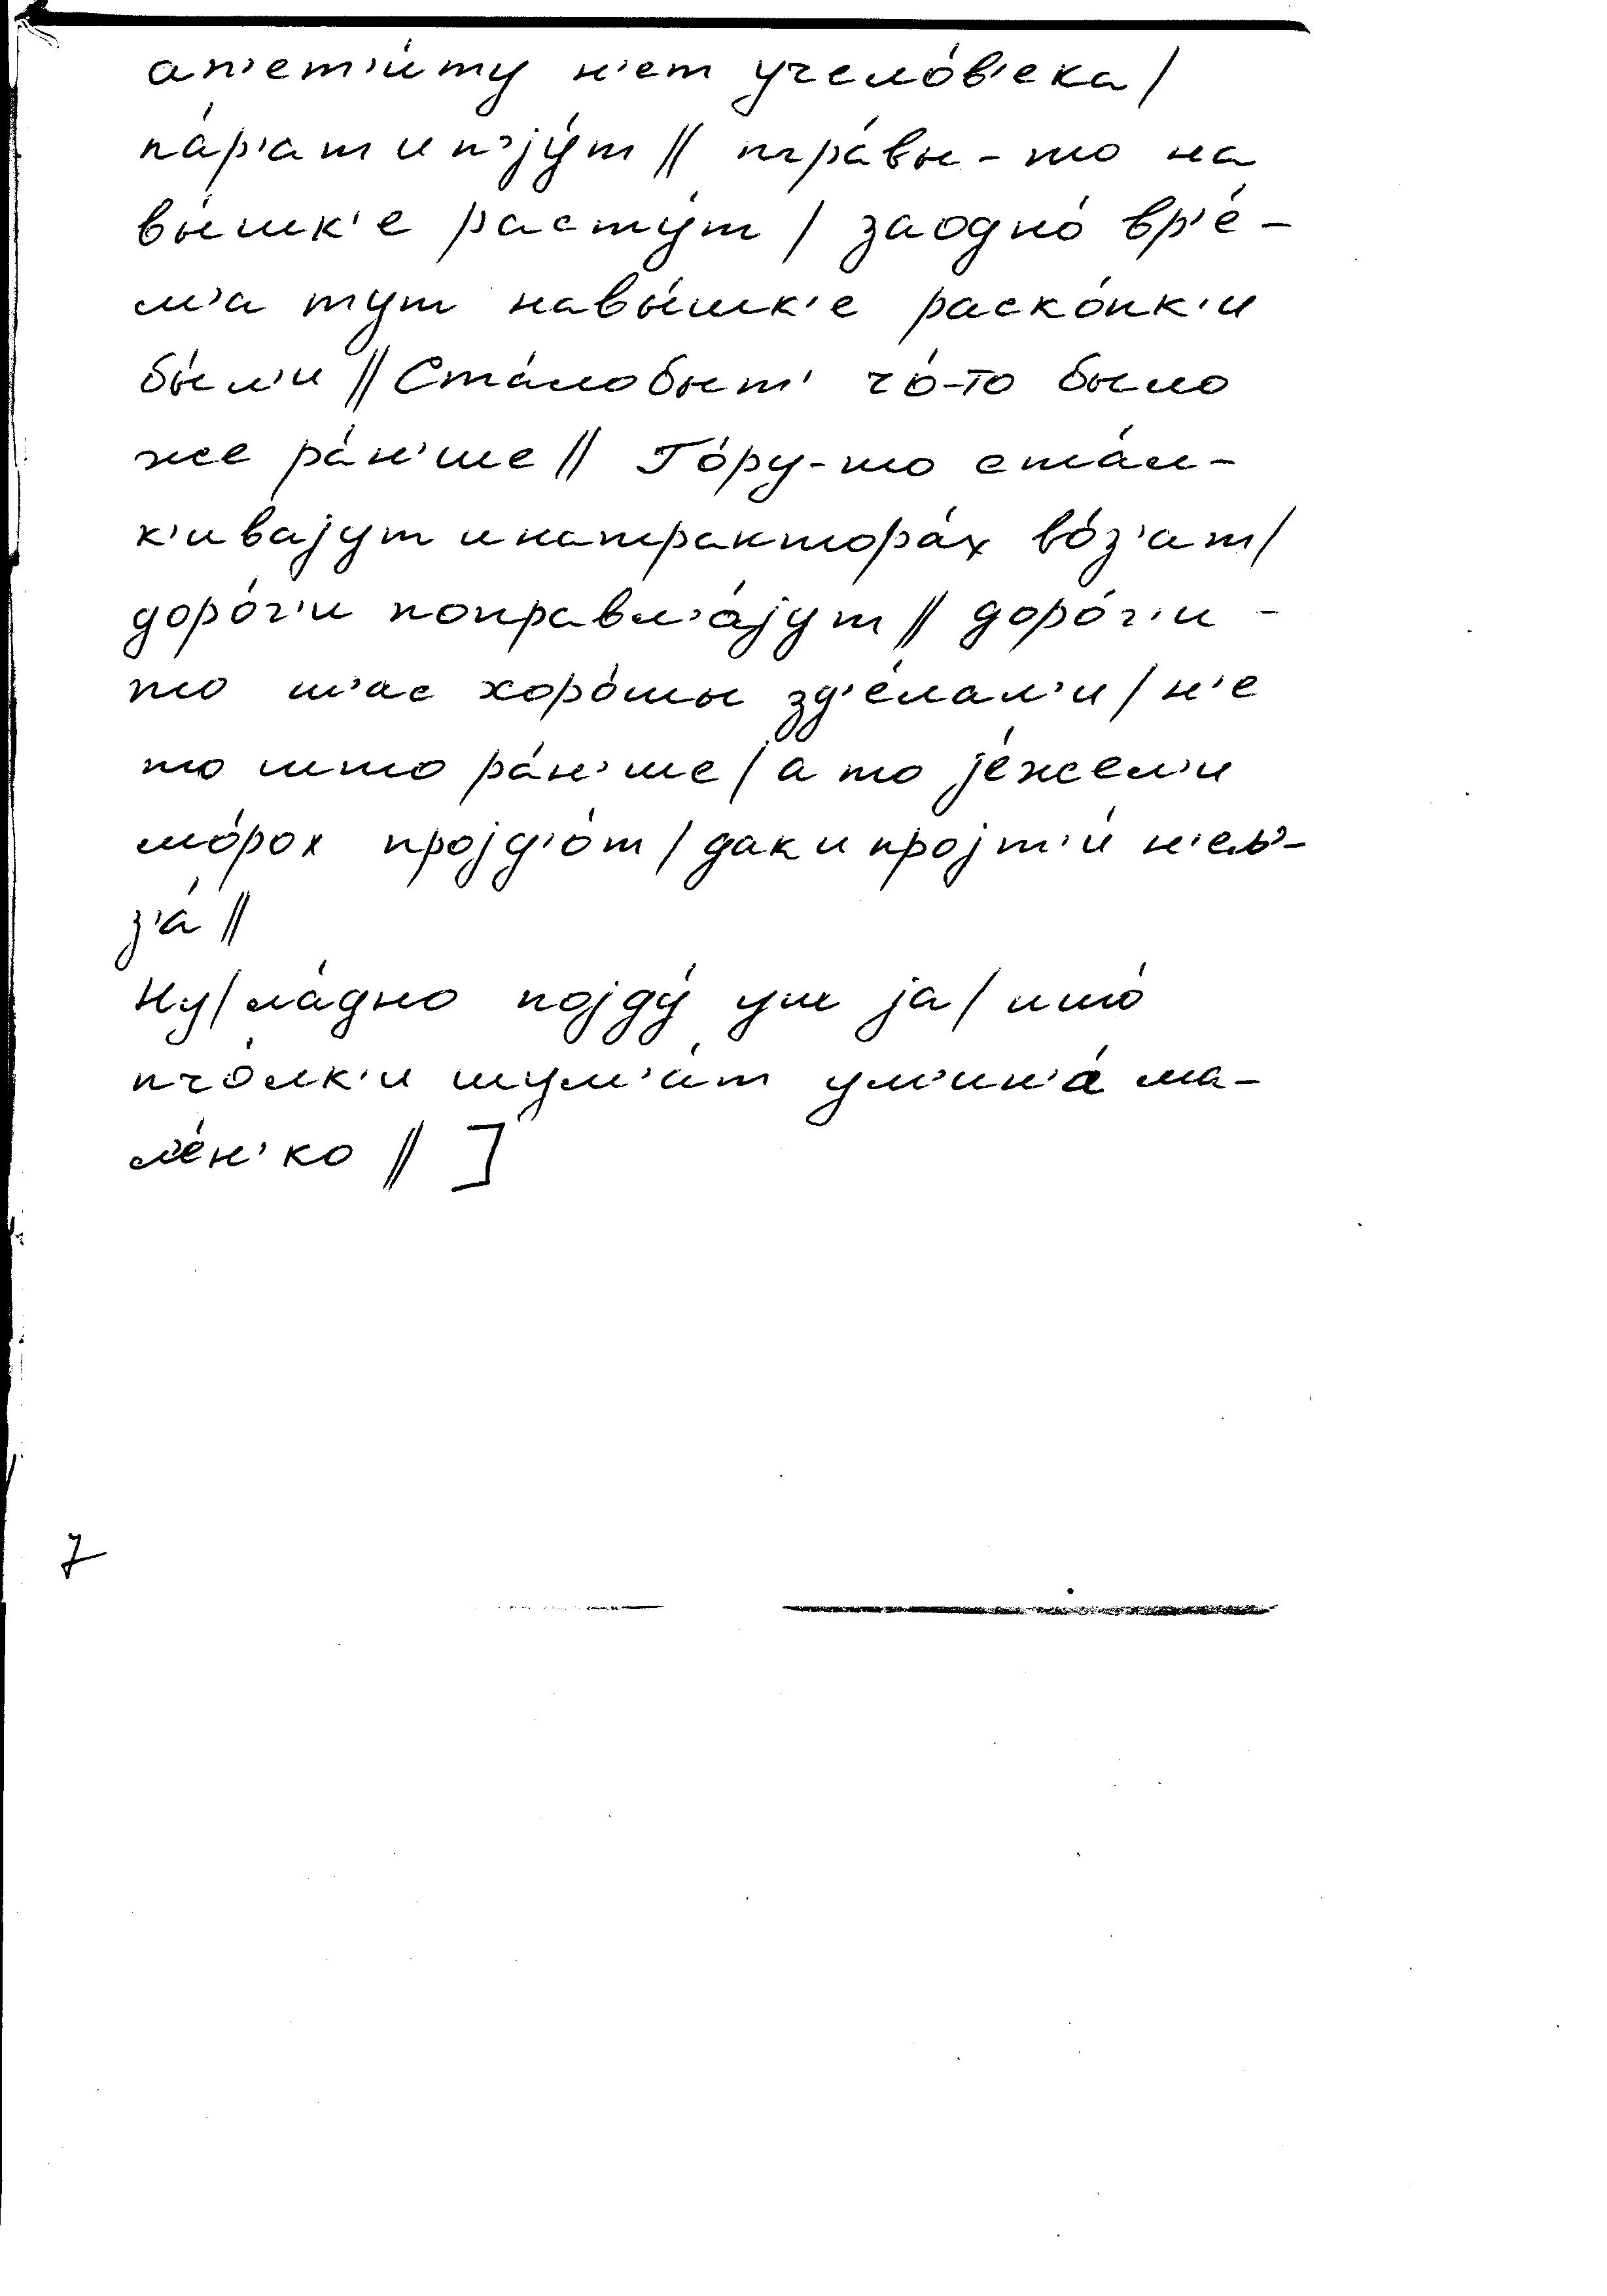 ап'ет'и́ту н'ет учело́в'ека /
па́р'ат и п'jу́т // тра́вы-то на
вы́шк'е расту́т / заодно́ вр'е́-
м'а тут навы́шк'е раско́пк'и
бы́л'и // Ста́лобыт' чо́-то было
же ра́н'ше // Го́ру-то ста́л-
к'иваjут инатрактора́х во́з'ат /
доро́г'и поправл'а́jут // доро́г'и -
то ш'ас хоро́шы зд'е́лал'и / н'е
то што ра́н'ше / а то jе́жел'и
мо́рох проjд'о́т / дак и проjт'и́ н'ел'-
з'а́ //
Ну / ла́дно поjду́ уш jа / што́
пчо́лк'и шум'а́т ум'ин'а́ ма-
л'е́н'ко // ]
7